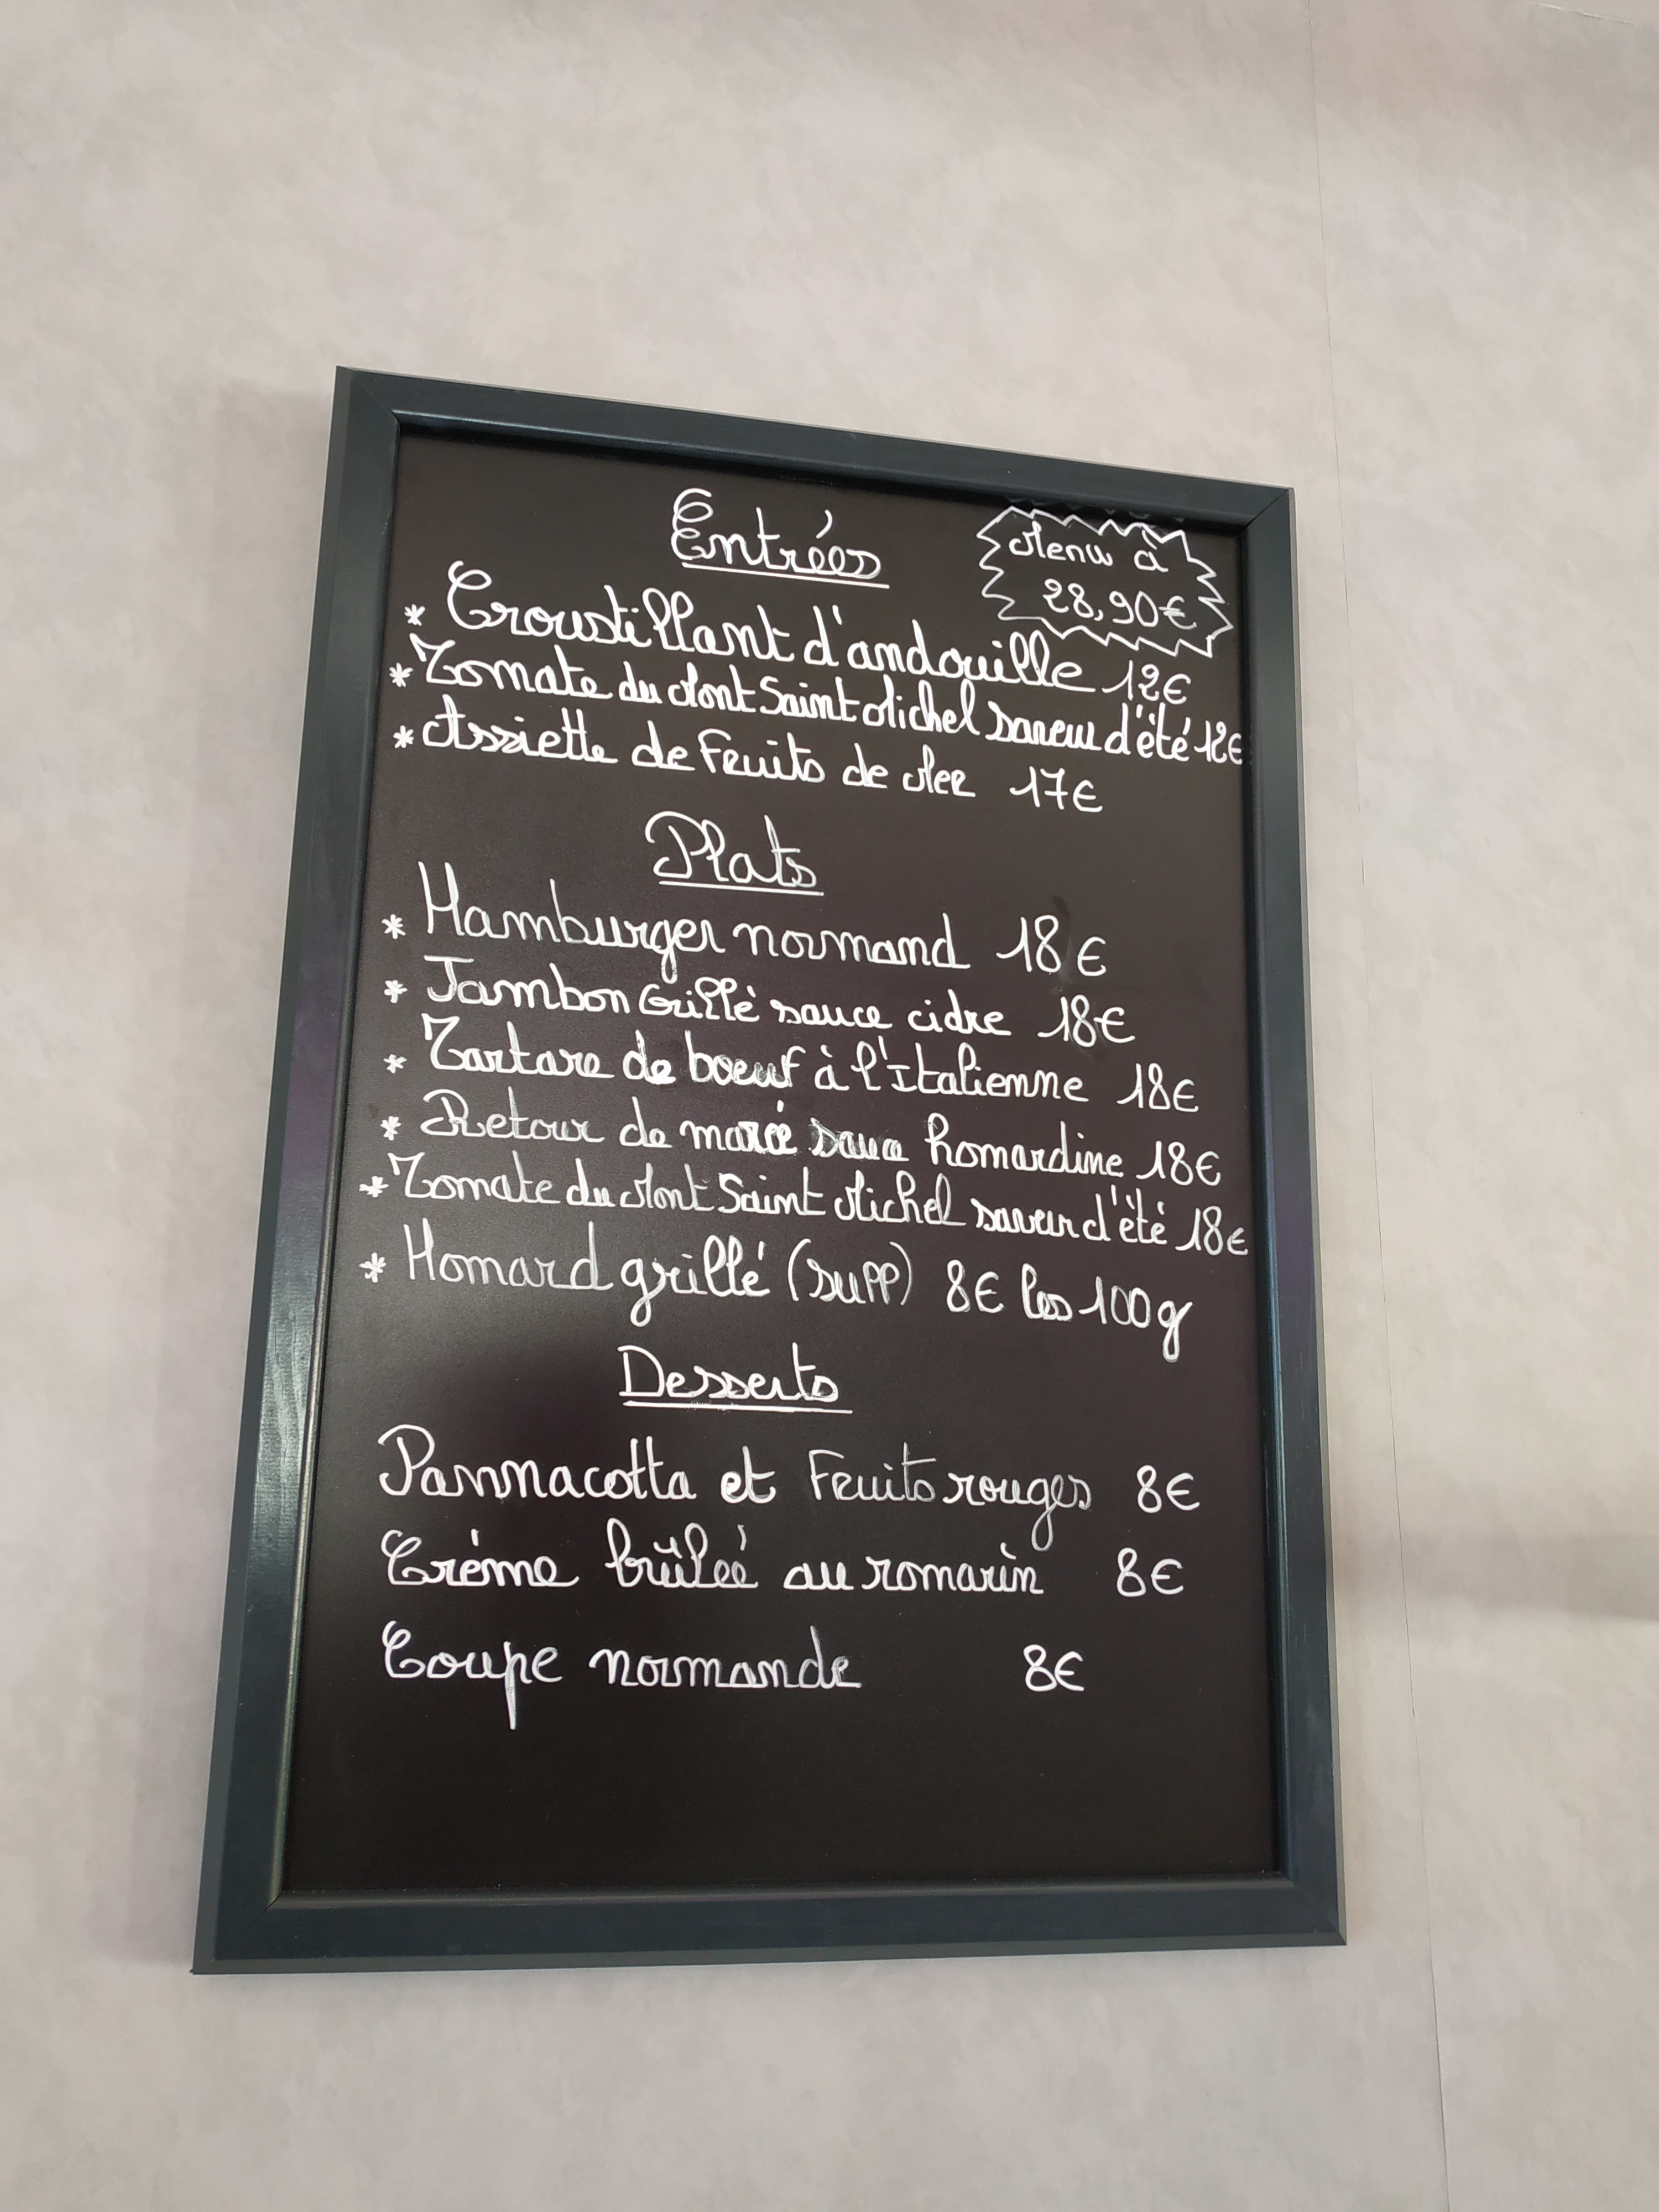 Entrées
Menu à
28,90€
* Croustillant d'andouille 12€
* Tomate du Mont Saint Michel saveur d'été 12€
* Assiette de Fruits de Mer 17€
Plats
* Hamburger normand 18€
* Jambon Grillé sauce cidre 18€
* Tartare de boeuf à l'Italienne 18€
* Retour de marée sauce homardine 18€
* Tomate du Mont Saint Michel saveur d'été 18€
* Homard grillé (supp) 8€ les 100g
Desserts
Pannacotta et Fruits rouges 8€
Créme brûleé au romarin 8€
Coupe normande 8€